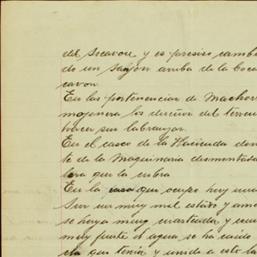 del Socavon, y es preciso cambi
do un sajon arriba de la boca
cavon.
En las pertenencias de Machorr
mojonera, los dueños del terren
hacer sus labranzas.
En el casco de la Hacienda don
te de la Maquinaria desmontada
lera que la cubra
En la casa que ocupo hoy una
Ser en muy mal estado, y ame
se haya muy cuarteada, y com
muy fuerte el agua se ha caido
cha que tenia y unido a esto la